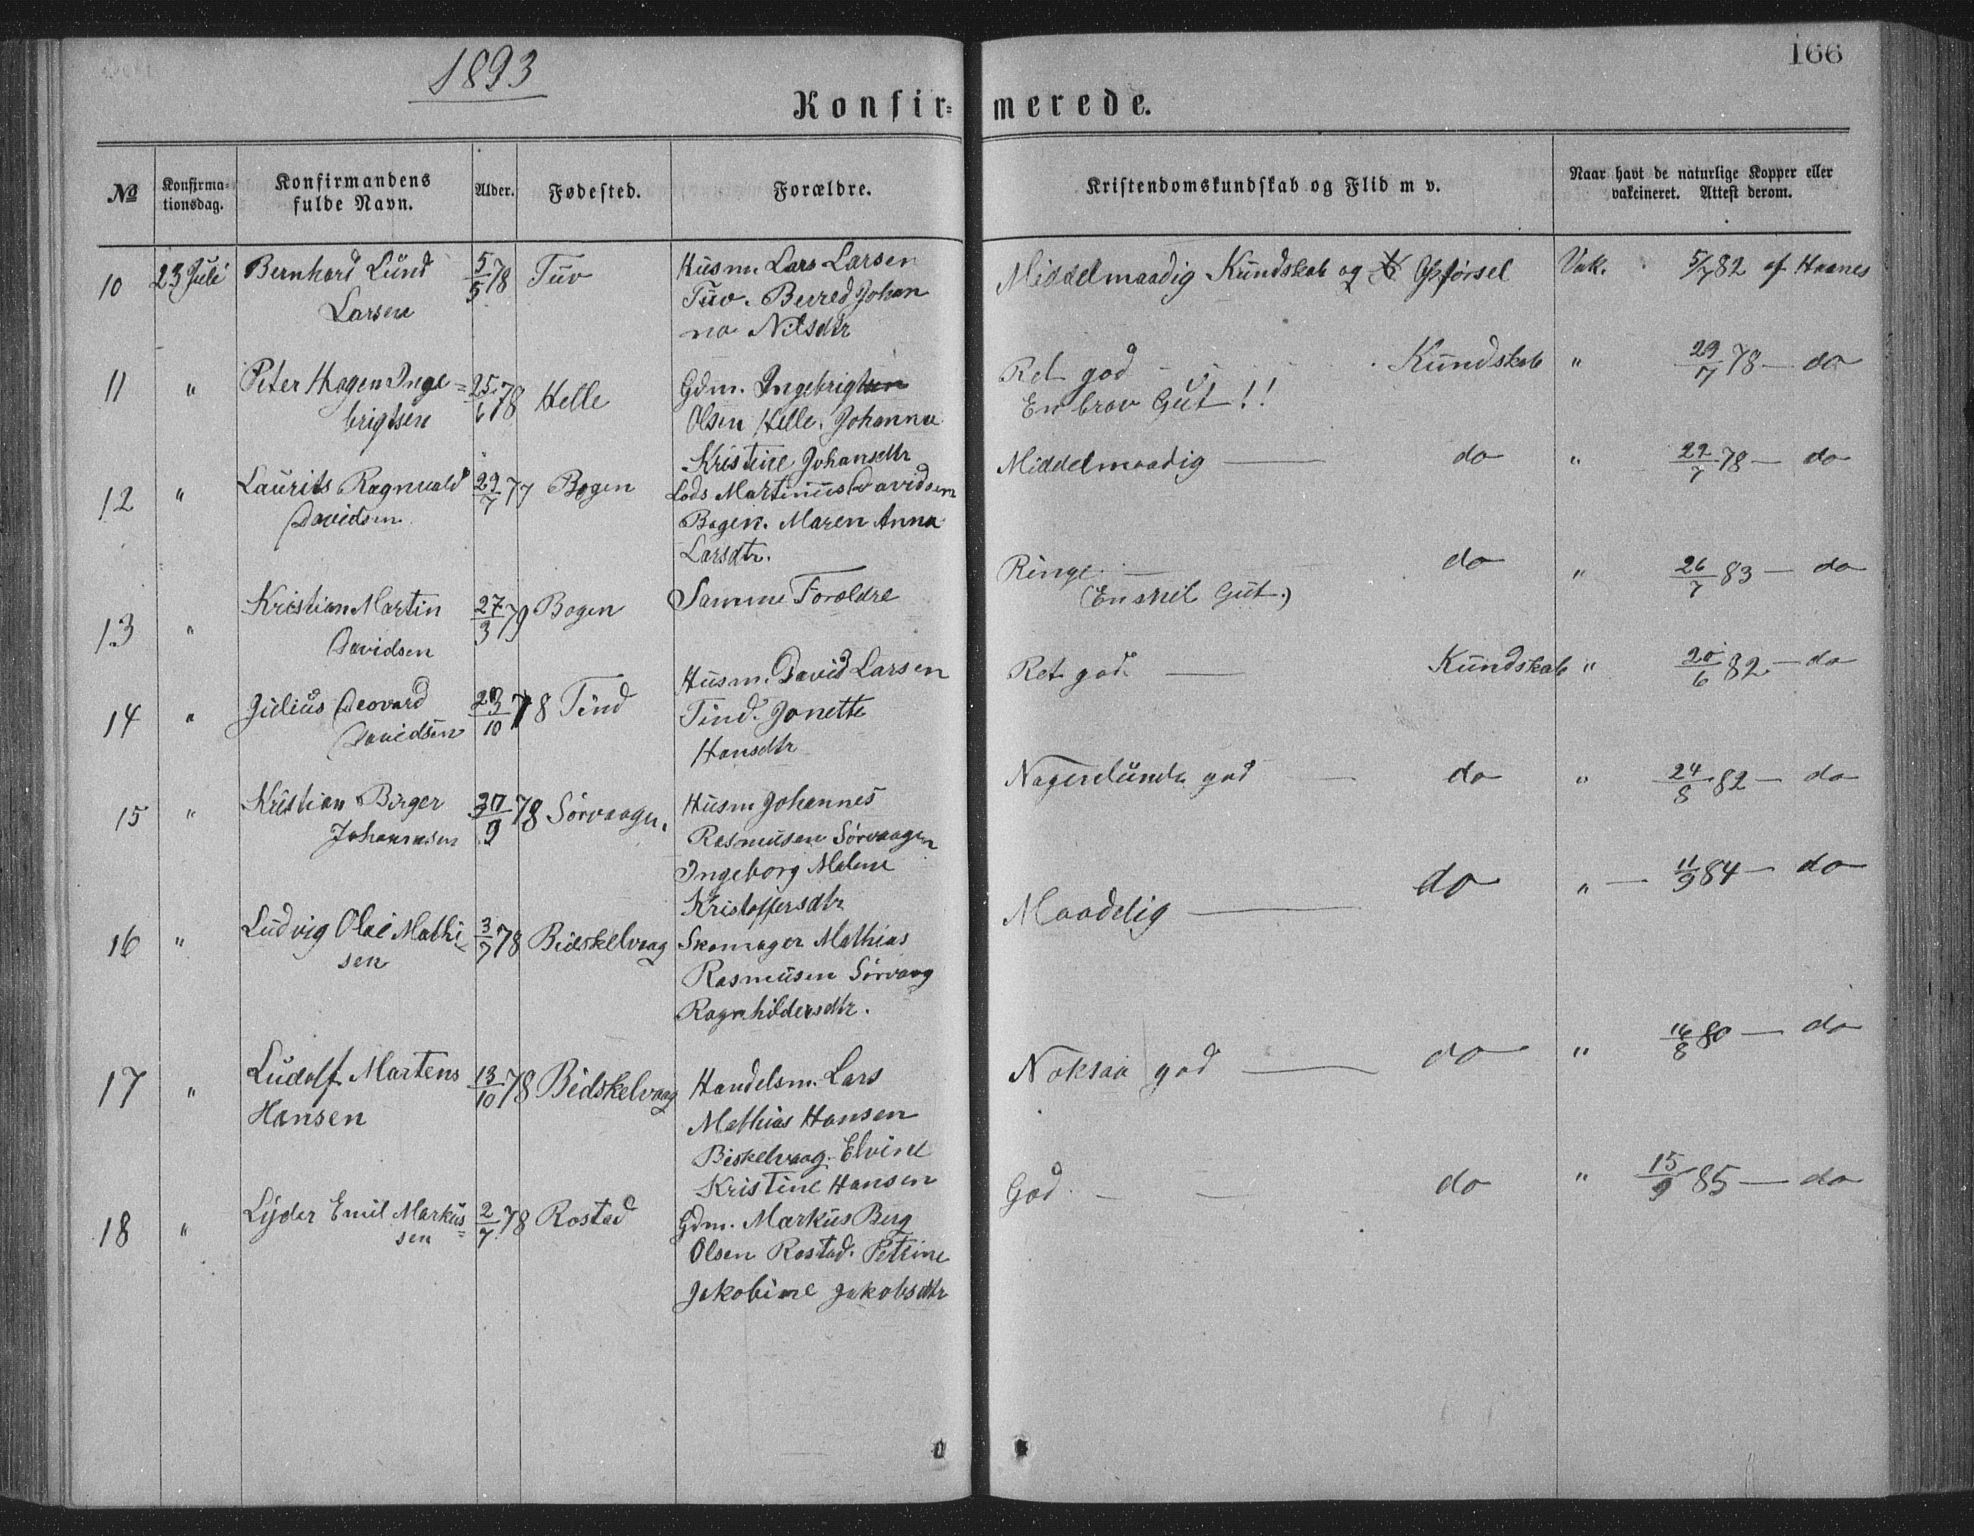 1893
166
Konfir=merede.
No
Konfirma=
tionsdag.
Konfirmandens
fulde Navn.
Alder.
Fødested.
Forældre.
Kristendomskundskab og Flid m v.
Naar havt de naturlige Kopper eller
vakcineret. Attest derom.
10 23 Juli Bernhard Lund 5/5 78 Tuv Husm Lars Larsen
Larsen Tuv. Berred Johan
na Nilsdtr
Middelmaadig Kundskab og Opførsel Vak. 5/7 82 af Haanes
11 " Peter Hagen Inge= 25/6 78 Helle Gdm. Ingebrigtsen
brigtsen Olsen Helle. Johanna
Kristine Johansdtr
Ret god Kundskab " 29/7 78 — do
En brav Gut!!
12 " Laurits Ragnvald 29/7 77 Bogen Lods Martinus Davidsen
Davidsen Bogen. Maren Anna
Larsdtr.
Middelmaadig — do " 22/7 78 — do
13 " Kristian Martin 27/3 79 Bogen Samme Forældre
Davidsen
Ringe — do " 26/7 83 — do
(En snil Gut.)
14 " Julius Deovard /10 78 Tind Husm. David Larsen
Davidsen Tind. Jonette
Hansdtr
Ret god. — Kundskab " 20/6 82 — do
15 " Kristian Birger /9 78 Sørvaagen. Husm Johannes
Johannesen Rasmusen Sørvaagen
Ingeborg Malene
Kristoffersdtr
Nogenlunde god — do " 24/8 82 — do
16 " Ludvig Olai Mathi= 3/7 78 Bidskelvaag Skomager Mathias
sen Rasmusen Sørvaag
Ragnhildersdtr.
Maadelig — do " — 11/9 84 — do
17 " Ludolf Martens 13/10 78 Bidskelvaag Handelsm. Lars
Hansen Mathias Hansen
Biskelvaag. Elvine
Kristine Hansen
Noksaa god — do " 16/8 80 — do
18 " Lyder Emil Markus= 2/7 78 Rostad Gdm. Markus Berg
sen Olsen Rostad. Petrine
Jakobine Jakobsdtr
God. — — do " 15/9 85 — do